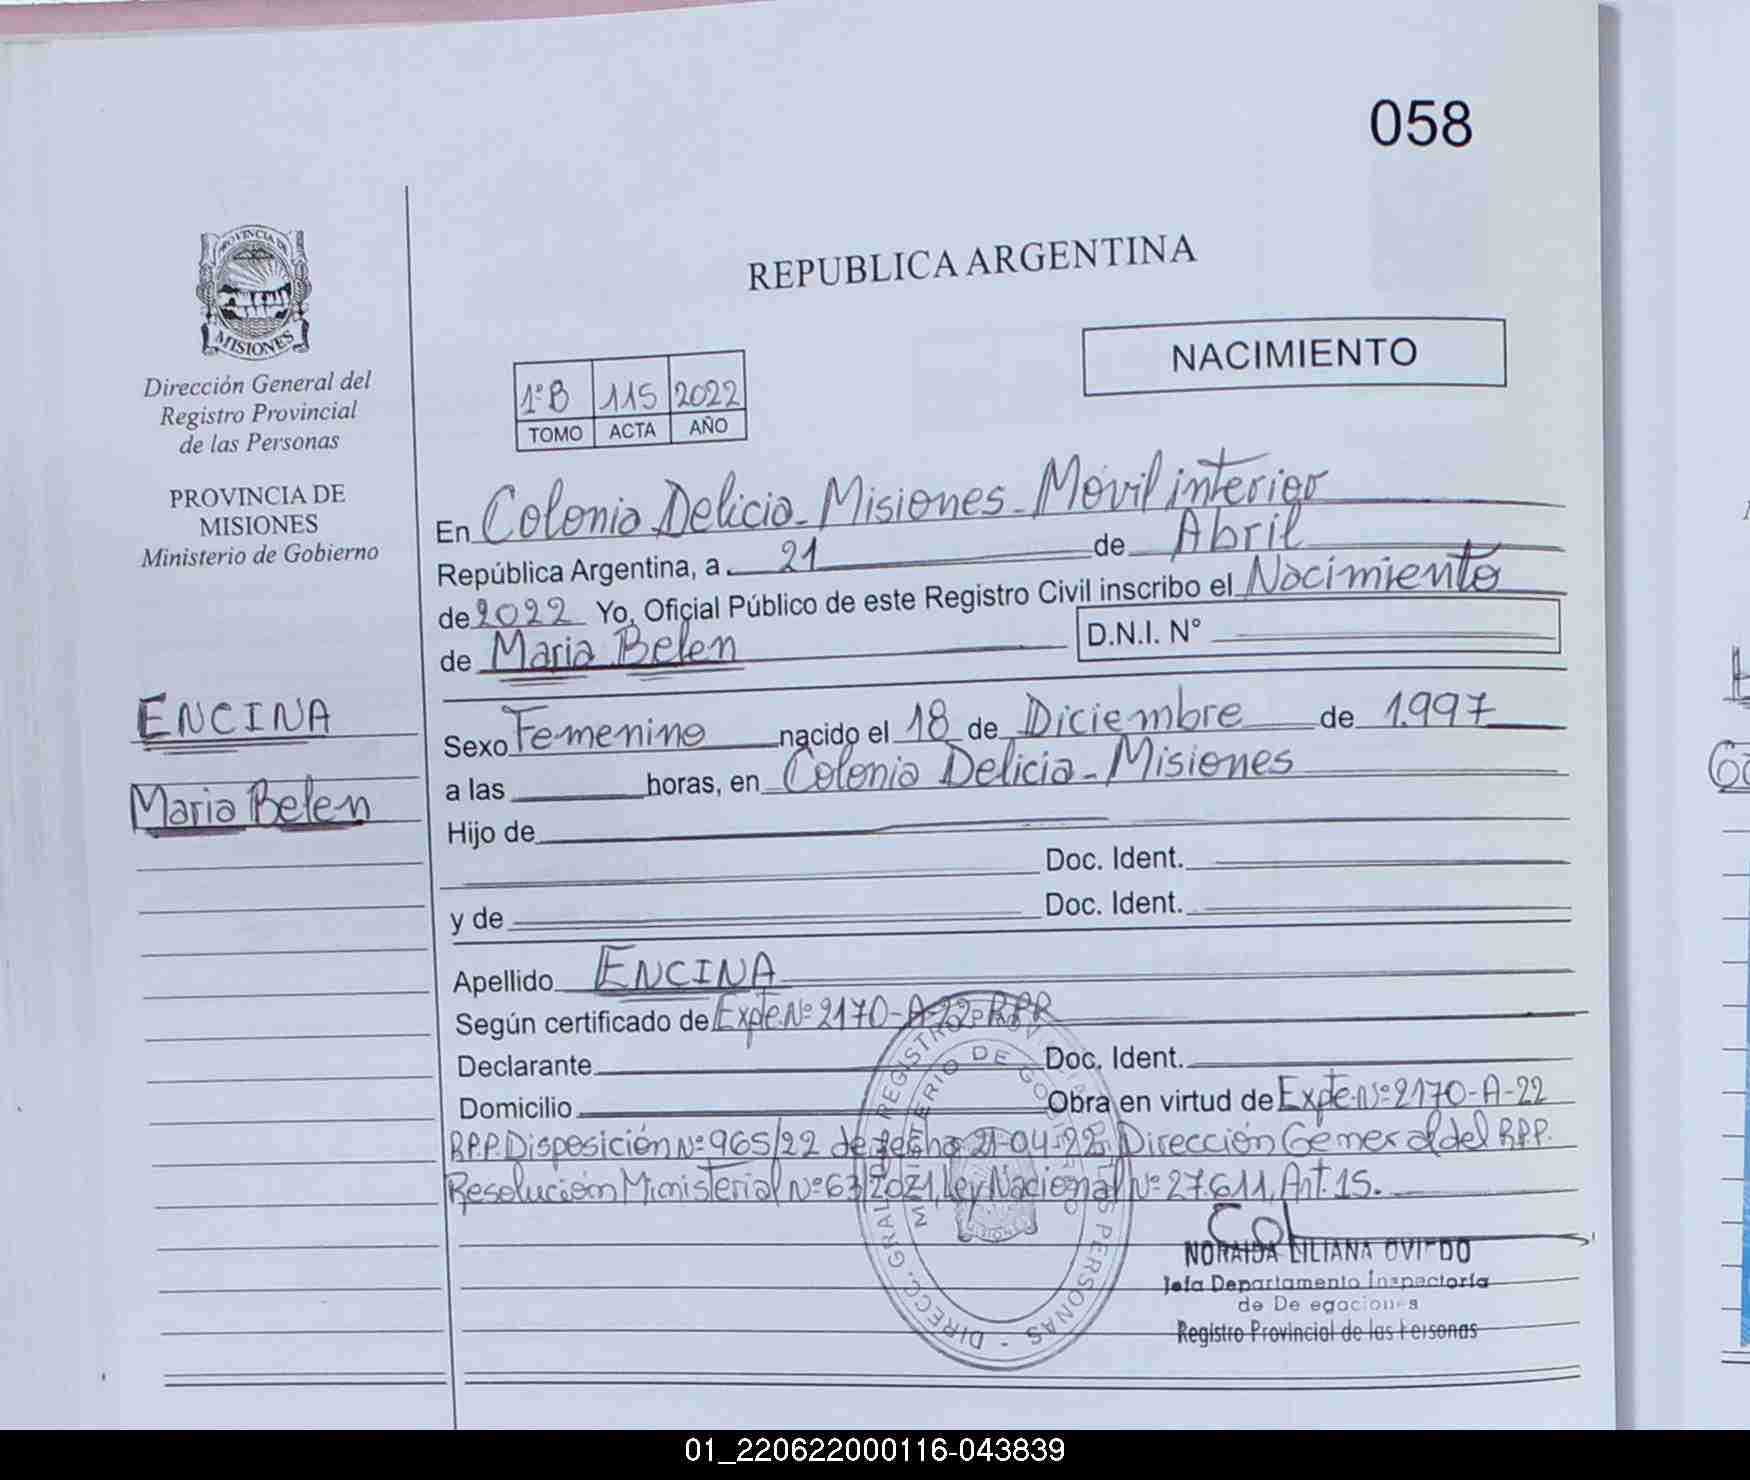 058
PROVINCIA DE
MISIONES
Dirección General del
Registro Provincial
de las Personas
PROVINCIA DE
MISIONES
Ministerio de Gobierno
ENCINA
Maria Belen
REPUBLICA ARGENTINA
NACIMIENTO
1ºB 115 2022
TOMO ACTA AÑO
En Colonia Delicia - Misiones - Movil interior
República Argentina, a 21 de Abril
de 2022 Yo, Oficial Público de este Registro Civil inscribo el Nacimiento
de Maria Belen D.N.I. Nº
Sexo Femenino nacido el 18 de Diciembre de 1.997
a las horas, en Colonia Delicia - Misiones
Hijo de
Doc. Ident.
y de Doc. Ident.
Apellido ENCINA
Según certificado de Expte. Nº 2170-A-22-RPP
Declarante Doc. Ident.
Domicilio Obra en virtud de Expte. Nº 2170-A-22
R.P.P. Disposición Nº 965/22 de fecha 21-04-22, Dirección General del R.P.P.
Resolución Ministerial Nº 63/2021, Ley Nacional Nº 27.611, Art. 15.
NORAIDA LILIANA OVIEDO
Jefa Departamento Inspectoría
de Delegaciones
Registro Provincial de las Personas
DIRECC. GRAL. REGISTRO PERSONAS
MINISTERIO DE GOBIERNO
MISIONES
01_220622000116-043839